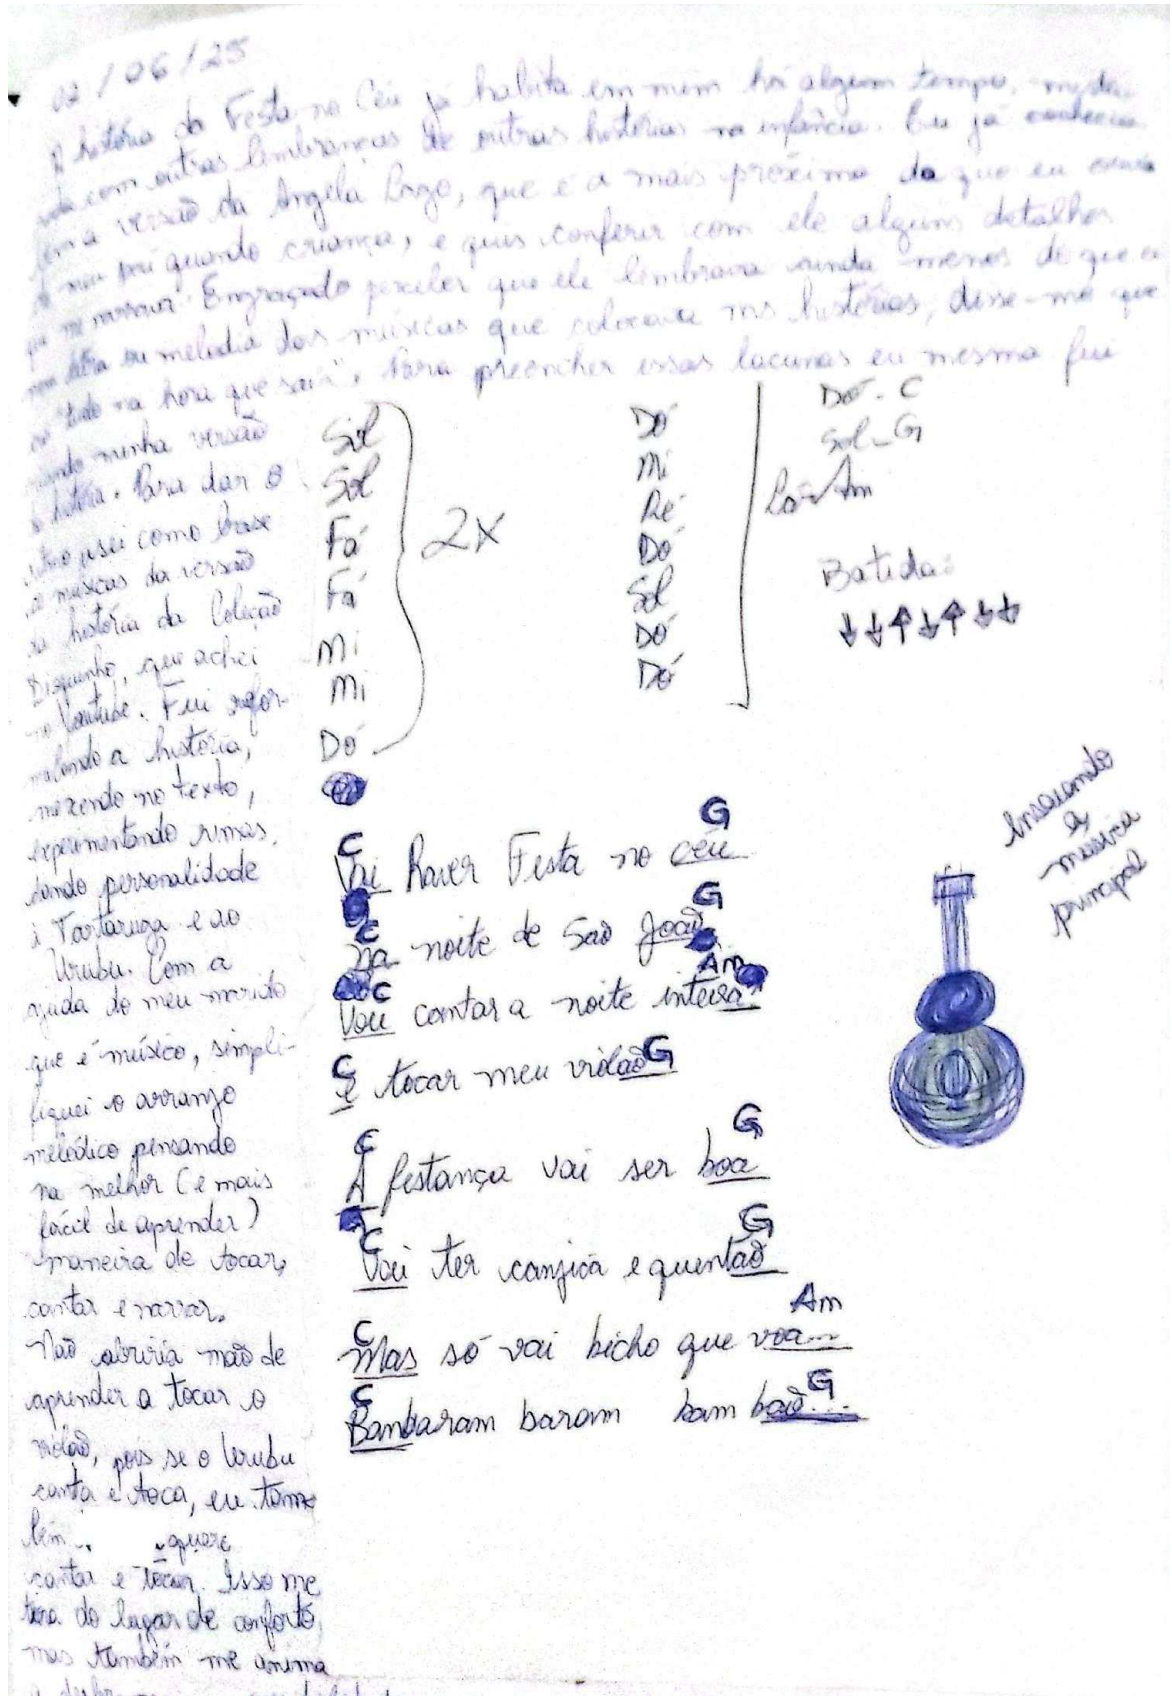 02/06/25
A história da Festa no Céu já habita em mim há algum tempo,
com outras lembranças de outras histórias na infância. Eu já conhecia
a versão da Angela Lago, que é a mais próxima do que eu ouvia
meu pai quando criança, e quis conferir com ele alguns detalhes
Engraçado perceber que ele lembrava ainda menos do que eu
letra ou melodia das músicas que colocava nas histórias, disse-me que
"tudo na hora que saía". Para preencher essas lacunas eu mesma fui
minha versão
história. Para dar o
usei como base
músicas da versão
da história da Coleção
Disquinho, que achei
no Youtube. Fui refor-
mulando a história,
mexendo no texto,
experimentando rimas,
dando personalidade
à Tartaruga e ao
Urubu. Com a
ajuda do meu marido
que é músico, simpli-
fiquei o arranjo
melódico pensando
na melhor (e mais
fácil de aprender)
maneira de tocar,
cantar e narrar.
Não abriria mão de
aprender a tocar o
violão, pois se o Urubu
canta e toca, eu tam-
bém quero
cantar e tocar. Isso me
tira do lugar de conforto,
mas também me anima
Sol
Sol
Fá
Fá
Mi
Mi
Dó
2X
Dó
Mi
Ré
Dó
Sol
Dó
Dó
Dó - C
Sol - G
Lá - Am
Batida:
↓↓↑↓↑↓↓
Ensaiando
a
música
principal
C G
Vai haver Festa no céu
C G
Na noite de São João
C Am
Vou cantar a noite inteira
C G
E tocar meu violão
C G
A festança vai ser boa
C G
Vai ter canjica e quentão
C Am
Mas só vai bicho que voa...
C G
Bambaram baram bam bão...